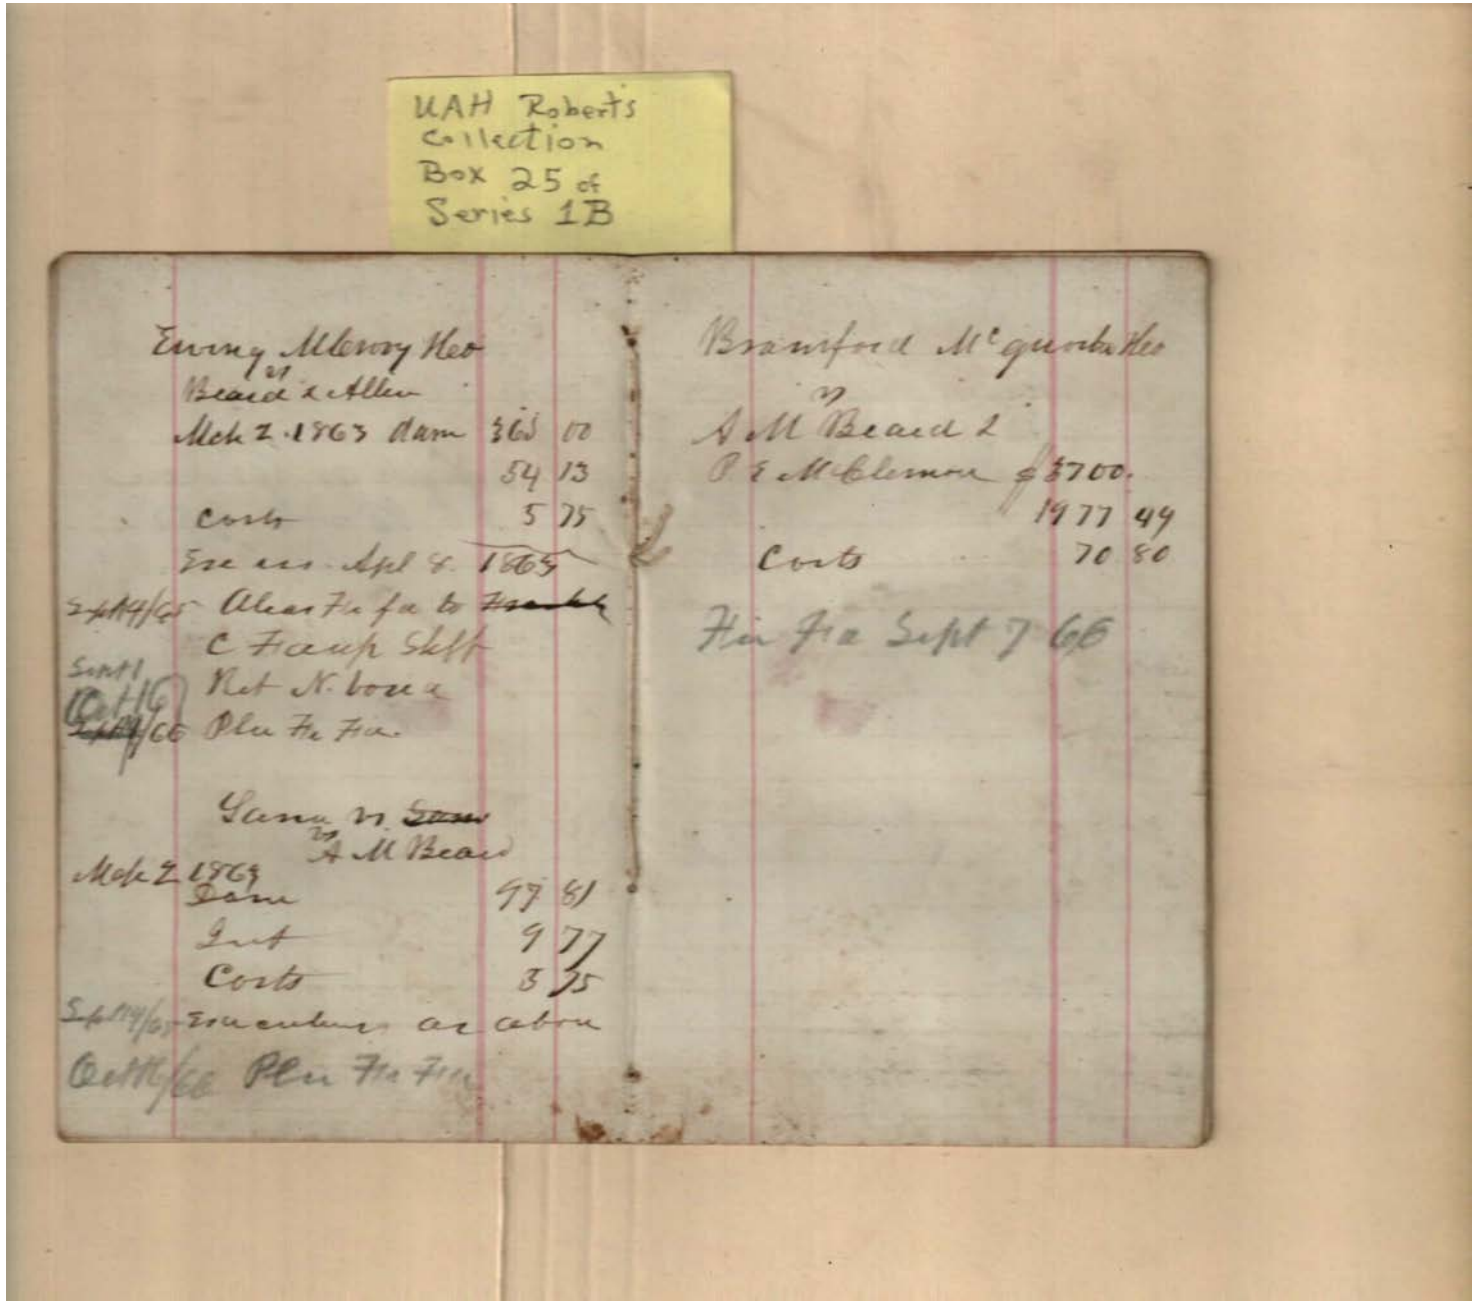 UAH Roberts
Collection
Box 25 of
Series 1B
Ewing
vs
Beard & Allen
Mch 2. 1863 dam 365 00
54 13
Costs 5 75
Apl 8. 1865
Sept 14/65 Alias Fi fa to
C Shff
Sept 1
Oct 16
Ret N. bona
/66 Plu Fi Fa.
Same vs Same
vs
A M Beard
Mch 2 1863
Dam 97 81
Int 9 77
Costs 5 75
Sept 14/65 as above
Oct 16/66 Plu Fi Fa
Bransford
vs
A M Beard &
P E McClemore $3700.
1977 49
Costs 70 80
Fi Fa Sept 7 66